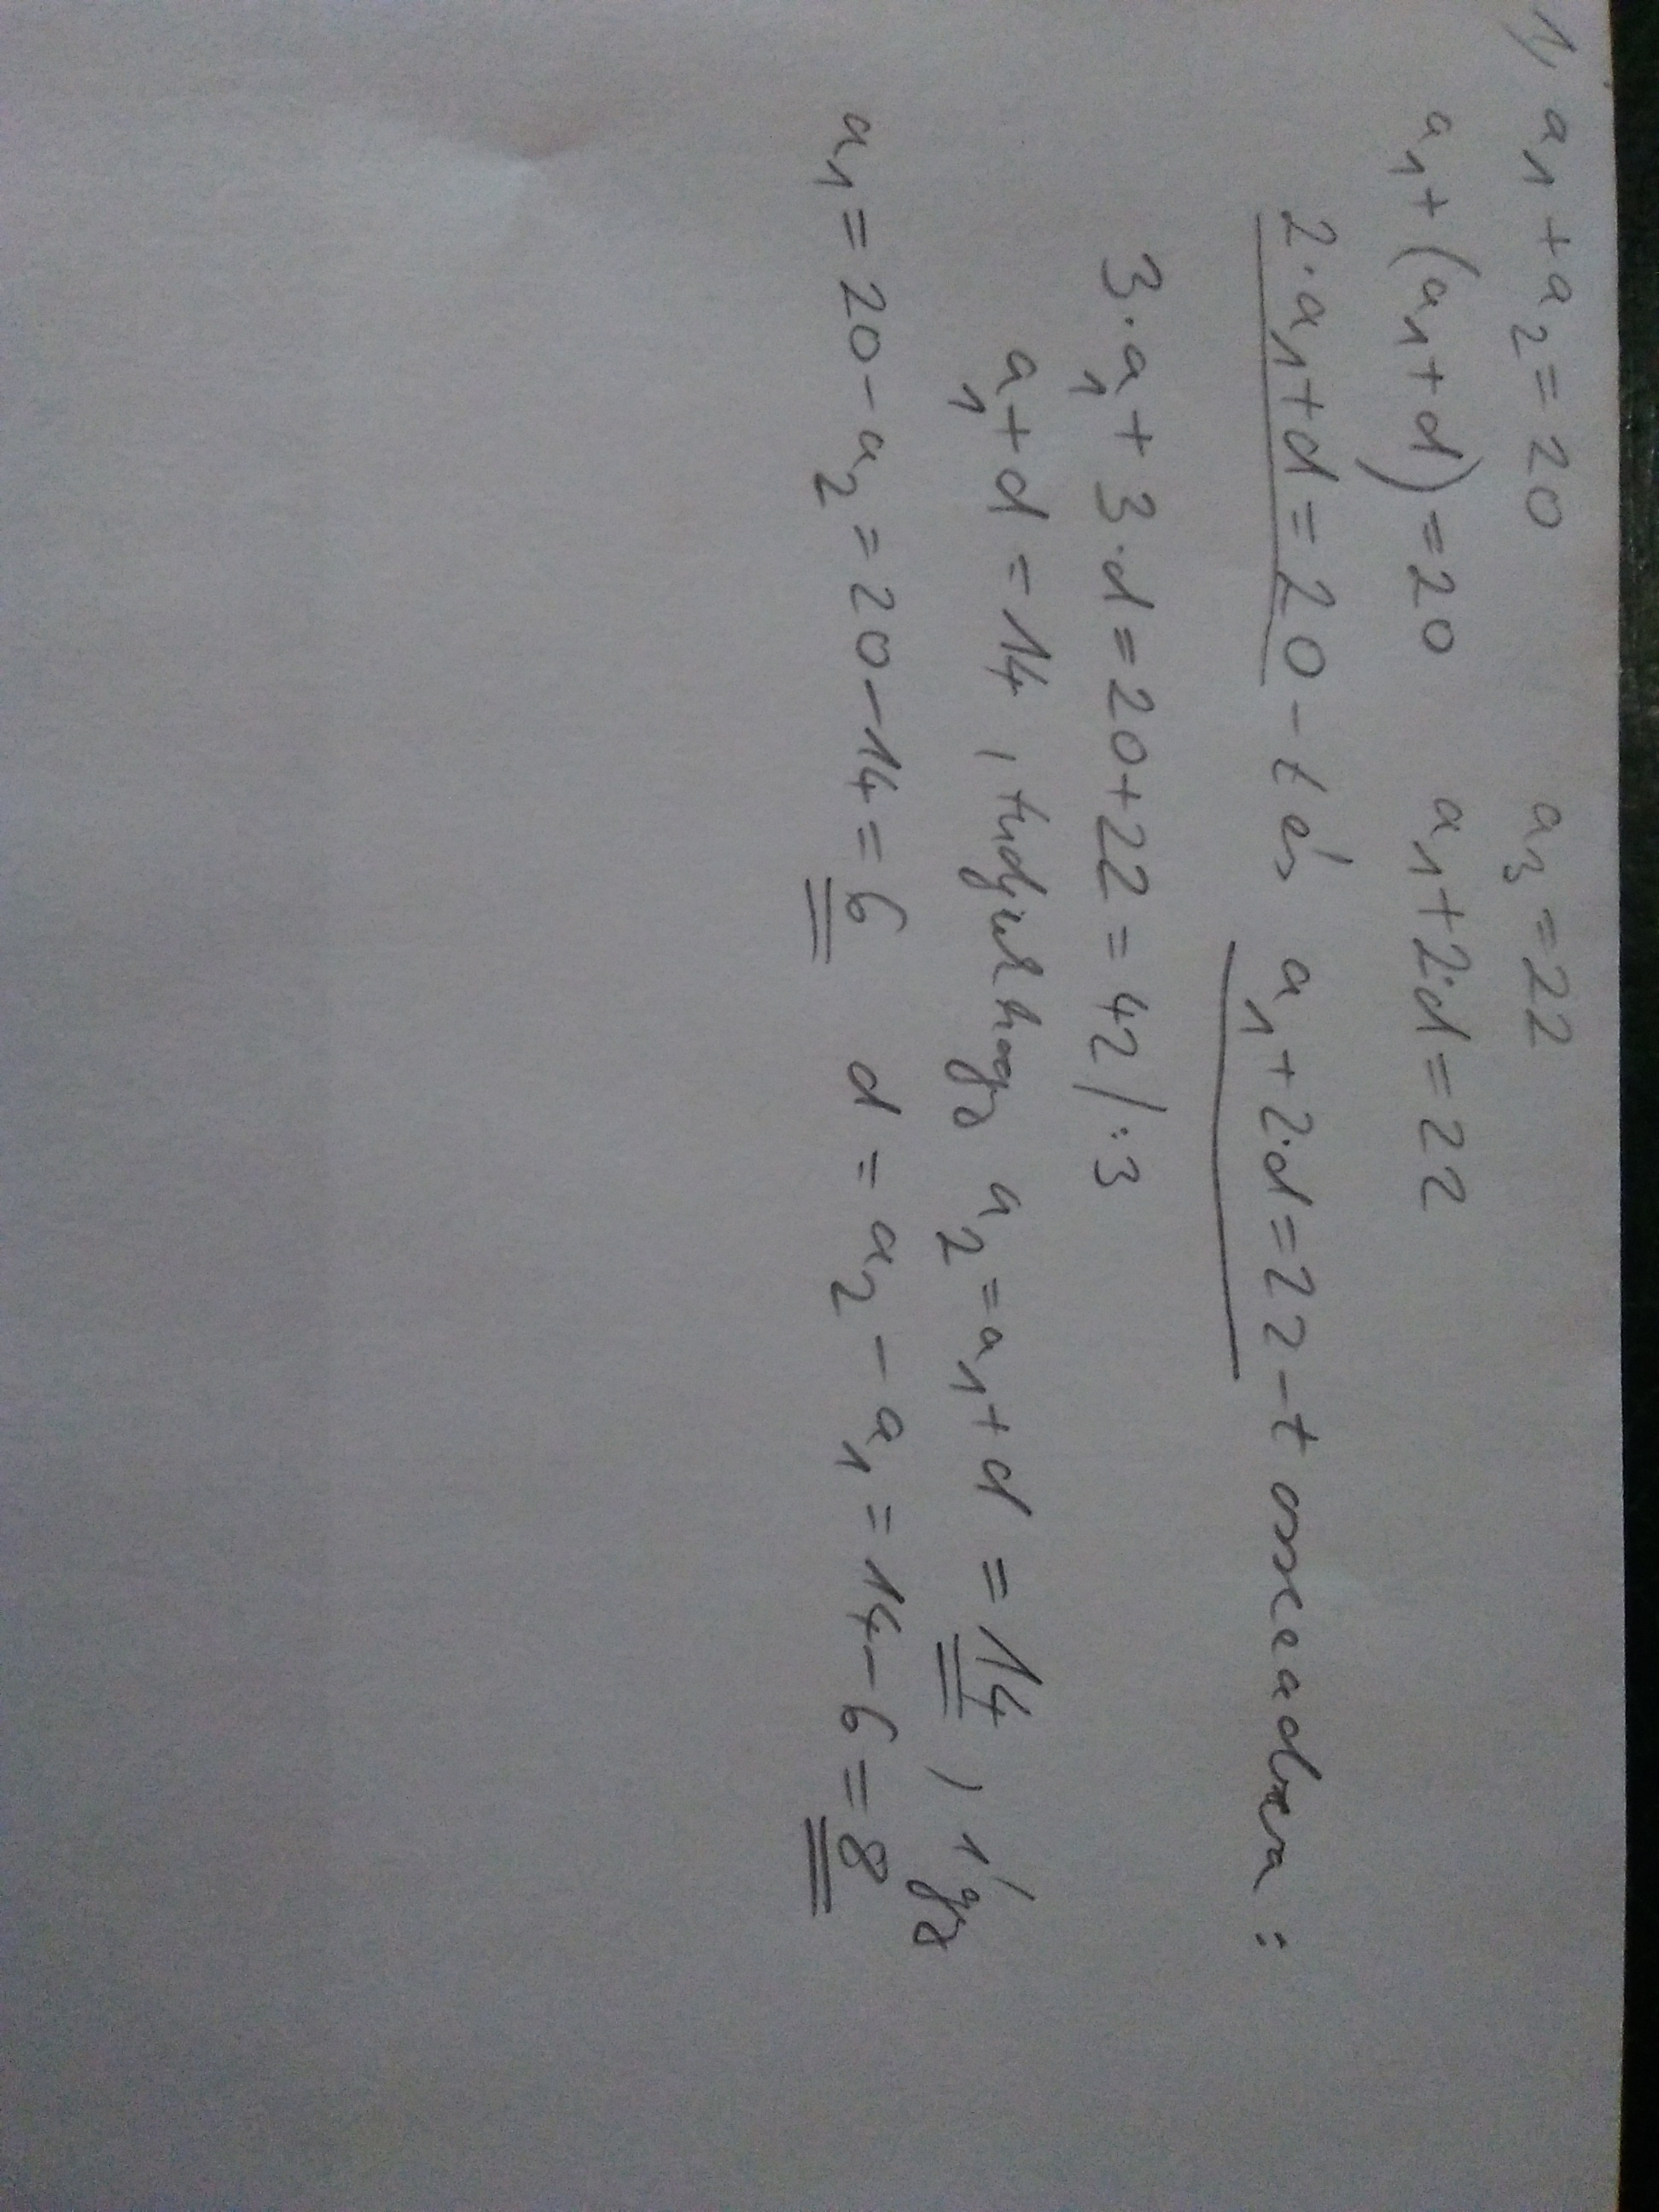 1, a₁+a₂=20 a₃=22
a₁+(a₁+d)=20 a₁+2·d=22
2·a₁+d=20-t és a₁+2·d=22-t összeadva:
3·a₁+3·d=20+22=42/:3
a₁+d=14, tudjuk hogy a₂=a₁+d=14, így
a₁=20-a₂=20-14=6 d=a₂-a₁=14-6=8